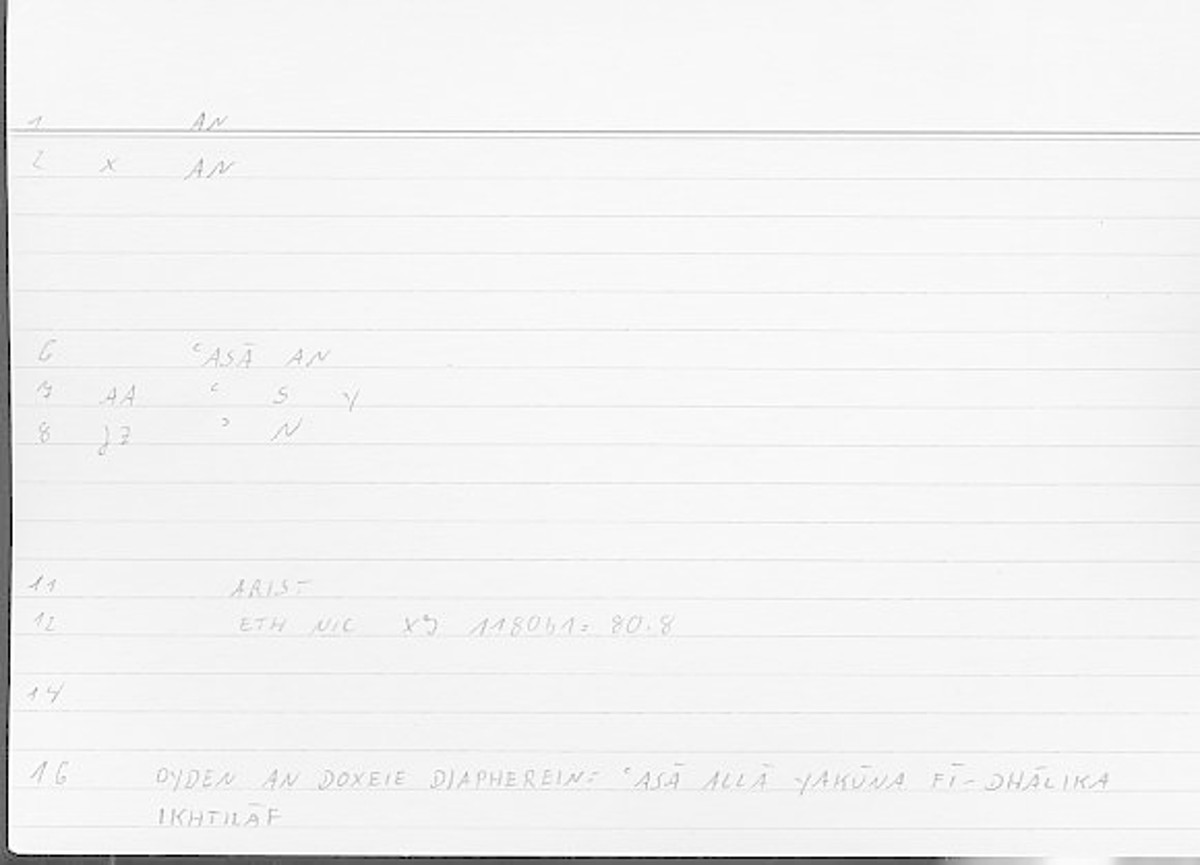 1 AN
2 X AN
6 ʿASĀ AN
7 AA ʿ S Y
8 jZ ʾ N
11 ARIST
12 ETH NIC X9 1180b1: 80.8
14
16 OYDEN AN DOXEIE DIAPHEREIN: ʿASĀ ALLĀ YAKŪNA FĪ-DHĀLIKA
IKHTILĀF